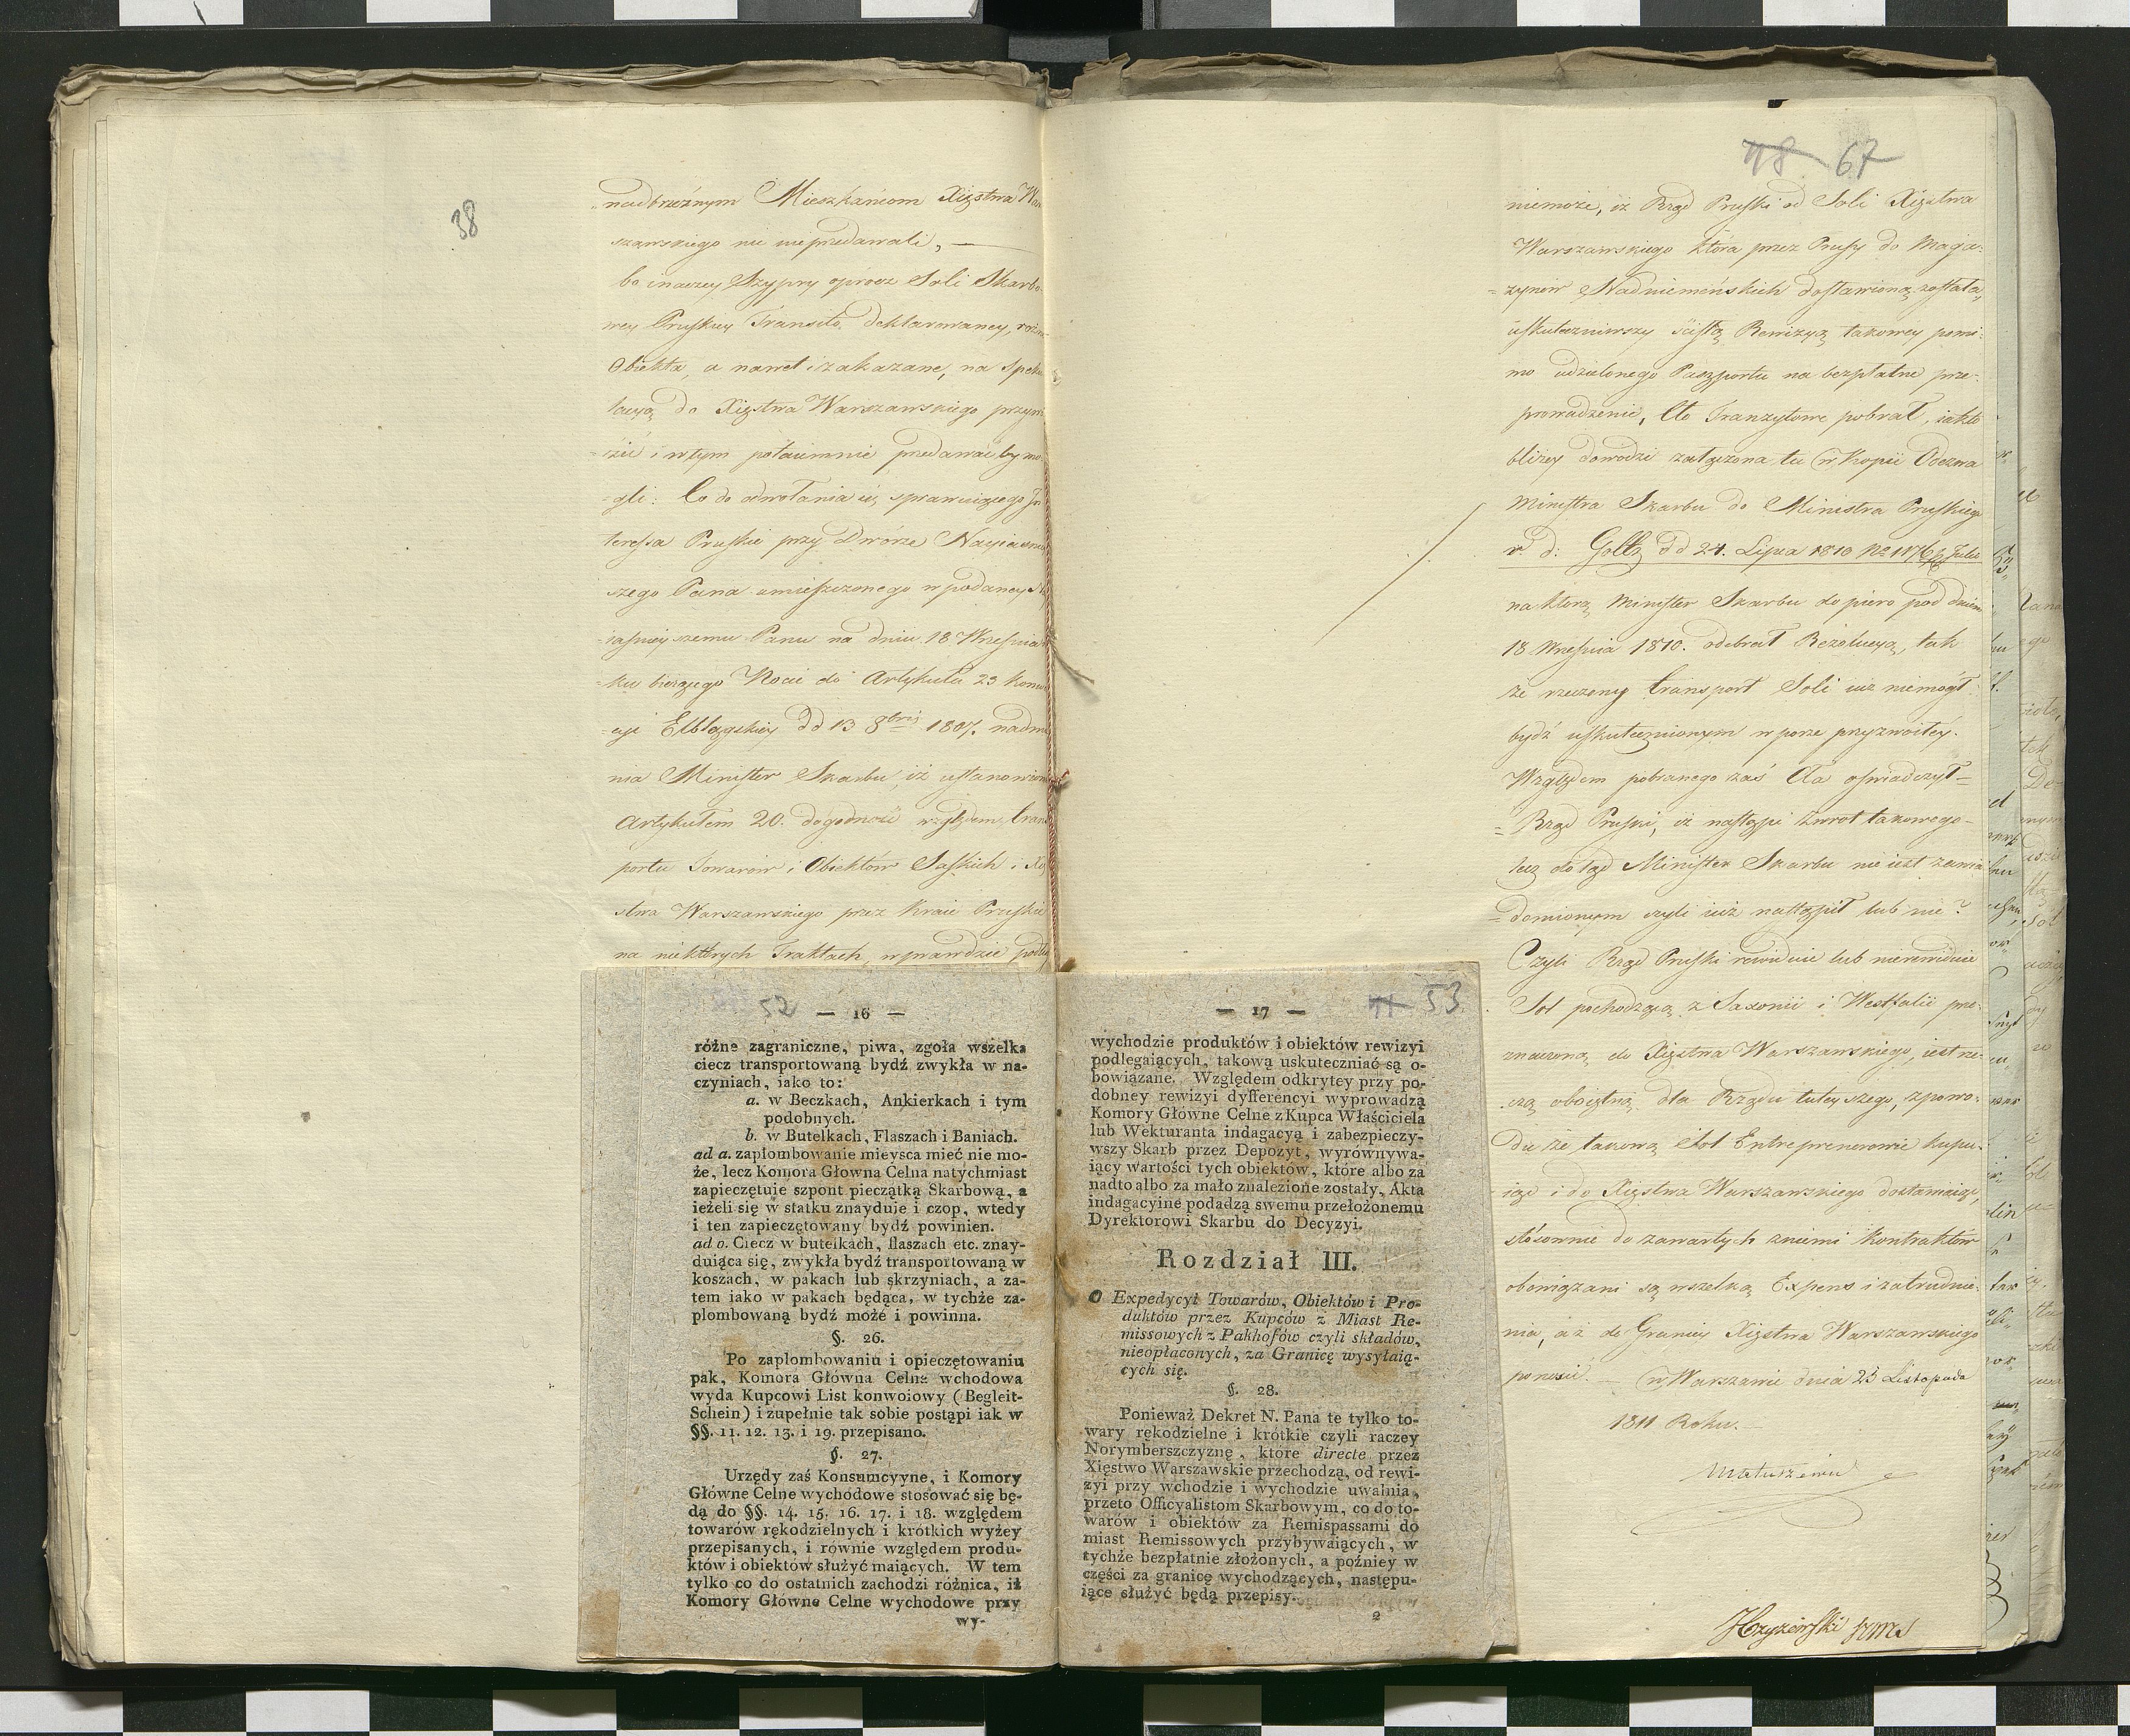 38
nadbrzeżnym Mieszkańcom Xięstwa War
szawskiego nie nieprzedawali, —
bo inaczey Szypry oprócz Soli Skarbo-
wey Pruskiey Transito deklarowaney, różne
Obiekta, a nawet i zakazane, na speku
lacyą do Xięstwa Warszawskiego przywo
zić i w tym potaiemnie przedawać by mo
gli. Co do odwołania się sprawuiącego In
teressa Pruskie przy Dworze Nayiaśniey
szego Pana umieszczonego w podaney Na
iaśnieyszemu Panu na dniu 18 Września
ku bieżącego Nocie do Artykułu 23 Konwen
cyi Elblągskiey dd 13 8bris 1807. nadmie
nia Minister Skarbu, iż ustanowiona
Artykułem 20. dogodność względem trans
portu Towarów i Obiektów Saskich i Xię
stwa Warszawskiego przez Kraie Pruskie
na niektórych Traktach, wprawdzie
52 — 16 —
różne zagraniczne, piwa, zgoła wszelka
ciecz transportowaną bydź zwykła w na-
czyniach, iako to:
a. w Beczkach, Ankierkach i tym
podobnych.
b. w Butelkach, Flaszach i Baniach.
ad a. zaplombowanie mieysca mieć nie mo-
że, lecz Komora Głowna Celna natychmiast
zapieczętuie szpont pieczątką Skarbową, a
ieżeli się w statku znayduie i czop, wtedy
i ten zapieczętowany bydź powinien.
ad b. Ciecz w butelkach, flaszach etc. znay-
duiąca się, zwykła bydź transportowaną w
koszach, w pakach lub skrzyniach, a za-
tem iako w pakach będąca, w tychże za-
plombowaną bydź może i powinna.
§. 26.
Po zaplombowaniu i opieczętowaniu
pak, Komora Główna Celna wchodowa
wyda Kupcowi List konwoiowy (Begleit-
Schein) i zupełnie tak sobie postąpi iak w
§§. 11. 12. 13. i 19. przepisano.
§. 27.
Urzędy zaś Konsumcyyne, i Komory
Główne Celne wychodowe stosować się bę-
dą do §§. 14. 15. 16. 17. i 18. względem
towarów rękodzielnych i krótkich wyżey
przepisanych, i równie względem produ-
któw i obiektów służyć maiących. W tem
tylko co do ostatnich zachodzi różnica, iż
Komory Główne Celne wychodowe przy
wy-
— 17 — 53
wychodzie produktów i obiektów rewizyi
podlegaiących, takową uskuteczniać są o-
bowiązane. Względem odkrytey przy po-
dobney rewizyi dyfferencyi wyprowadzą
Komory Główne Celne z Kupca Właściciela
lub Wekturanta indagacyą i zabezpieczy-
wszy Skarb przez Depozyt, wyrównywa-
iący wartości tych obiektów, które albo za
nadto albo za mało znalezione zostały, Akta
indagacyine podadzą swemu przełożonemu
Dyrektorowi Skarbu do Decyzyi.
Rozdział III.
O Expedycyi Towarów, Obiektów i Pro-
duktów przez Kupców z Miast Re-
missowych z Pakhofów czyli składów,
nieopłaconych, za Granicę wysyłaią-
cych się.
§. 28.
Ponieważ Dekret N. Pana te tylko to-
wary rękodzielne i krótkie czyli raczey
Norymberszczyznę, które directe przez
Xięstwo Warszawskie przechodzą, od rewi-
zyi przy wchodzie i wychodzie uwalnia,
przeto Officyalistom Skarbowym, co do to-
warów i obiektów za Remispassami do
miast Remissowych przybywaiących, w
tychże bezpłatnie złożonych, a poźniey w
części za granicę wychodzących, następu-
iące służyć będą przepisy.
2
48 67
niemoże, iż Rząd Pruski od Soli Xięstwa
Warszawskiego która przez Prusy do Maga-
zynów Nadniemeńskich dostawioną została,
uskuteczniwszy ścisłą Rewizyą takowey pomi-
mo udzielonego Paszportu na bezpłatne prze-
prowadzenie, Cło Tranzytowe pobrał, iak to
bliżey dowodzi załączona tu w Kopii Odezwa
Ministra Skarbu do Ministra Pruskiego
v d. Goltz dd 24. Lipca 1810
na którą Minister Skarbu dopiero pod dniem
18 Września 1810. odebrał Rezolucyą, tak
że rzeczony transport Soli iuż niemógł
bydź uskutecznionym w porze przyzwoitey.
Względem pobranego zaś Cła oświadczył
Rząd Pruski, iż nastąpi zwrot takowego
lecz dotąd Minister Skarbu nie iest zawia
domionym czyli iuż nastąpił lub nie?
Czyli Rząd Pruski rewiduie lub nierewiduie
Sól pochodzącą z Saxonii i Westfalii prze-
znaczoną do Xięstwa Warszawskiego, iest rze-
czą oboiętną dla Rządu tuteyszego, z powo-
du że takową Sól Entreprenerowie kupu-
iąc i do Xięstwa Warszawskiego dostawiaiąc,
stósownie do zawartych z niemi Kontraktów
obowiązani są wszelką Expens i zatrudnie-
nia, aż do Granicy Xięstwa Warszawskiego
ponosić. — w Warszawie dnia 23 Listopada
1811 Roku.
Matuszewic